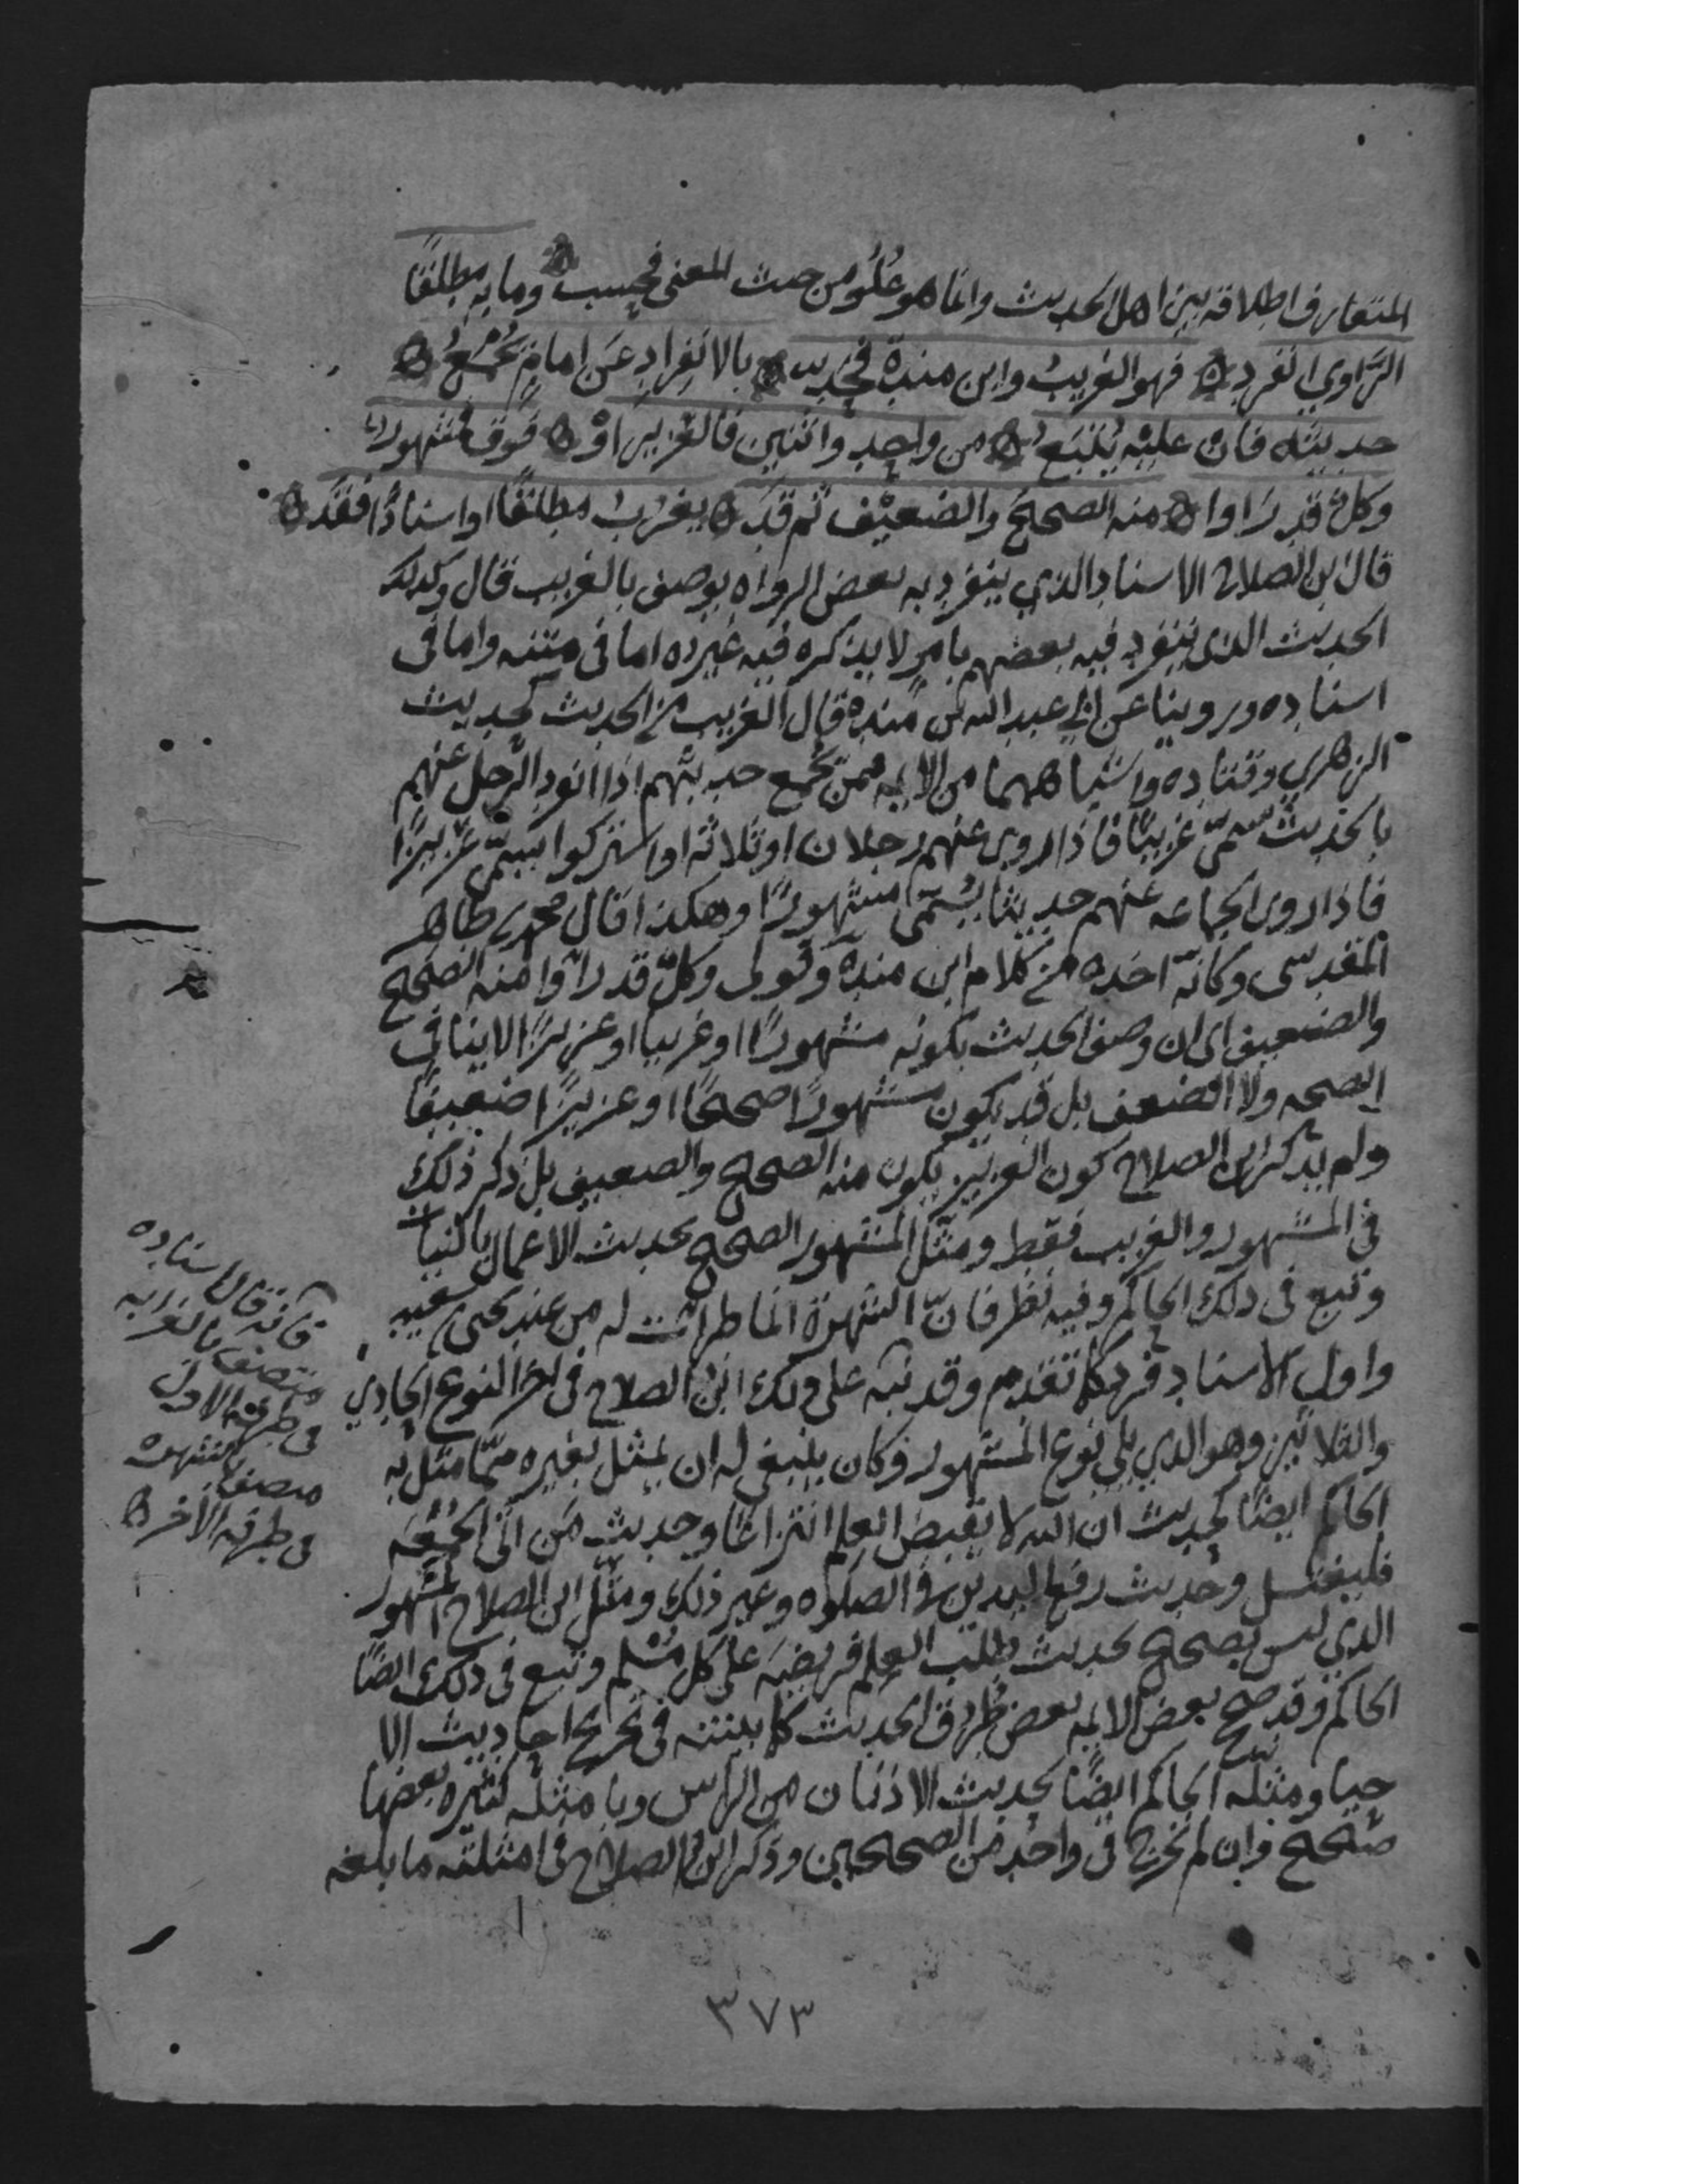 المتعارف اطلاقه بين اهل الحديث وانما هو علو من حيث المعنى فحسب ه وما به مطلقًا
الراوي انفرد ه فهو الغريب وابن مندة فحد ه بالانفراد عن امام يجمع ه
حديثه فان عليه يتبع ه من واحد واثنين فالعزيز او ه فوق فمشهور
وكل قد راوا ه منه الصحيح والضعيف ثم قد ه يغرب مطلقًا او اسنادًا فقد ه
قال ابن الصلاح الاسناد الذي ينفرد به بعض الرواه يوصف بالغريب قال وكذلك
الحديث الذى ينفرد فيه بعضهم بامر لا يذكره فيه غيره اما فى متنه واما فى
اسناده وروينا عن ابي عبد الله بن مندة قال الغريب من الحديث كحديث
الزهري وقتاده واشباههما من الايمه ممن يجمع حديثهم اذا انفرد الرجل عنهم
بالحديث سمّى غريبًا فاذا روى عنهم رجلان او ثلاثة او اشتركوا يسمّى عزيزًا
فاذا روى الجماعه عنهم حديثا يسمّى مشهورًا وهكذا قال محمد بن طاهر
المقدسى وكأنّه اخذه من كلام ابن مندة وقولى وكلّ قد راوا منه الصحيح
والضعيف اى ان وصف الحديث بكونه مشهورًا او غريبا او عزيزًا لا ينافي
الصحه ولا الضعف بل قد يكون مشهورًا صحيحًا او عزيزًا ضعيفًا
ولم يذكر ابن الصلاح كون العزيز يكون منه الصحيح والضعيف بل ذكر ذلك
فى المشهور والغريب فقط ومثّل المشهور الصحيح بحديث الاعمال بالنيات
وتبع فى ذلك الحاكم وفيه نظر فانّ الشهرة انما طرأت له من عند يحيى بن سعيد
واول الاسناد فرد كما تقدم وقد نبّه على ذلك ابن الصلاح فى اخر النوع الحادي
والثلاثين وهو الذي يلي نوع المشهور وكان ينبغى له ان يمثل بغيره ممّا مثل به
الحاكم ايضًا كحديث ان الله لا يقبض العلم انتزاعًا وحديث من اتى الجمعه
فليغتسل وحديث رفع اليدين فى الصلوه وغير ذلك ومثّل ابن الصلاح المشهور
الذي ليس بصحيح بحديث طلب العلم فريضة على كل مسلم وتبع فى ذلك ايضًا
الحاكم وقد صحح بعض الايمه بعض طرق الحديث كما بينته فى تخريج احاديث الا
حيا ومثله الحاكم ايضًا بحديث الاذنان من الراس وبامثله كثيره بعضها
صحيح وان لم تخرج فى واحد من الصحيحين وذكر ابن الصلاح فى امثلته ما بلغه
فانه قال اسناده
متصف بالغرابه
فى طرفه الاول
متصف بالشهره
فى طرفه الاخر ه
٣٧٣